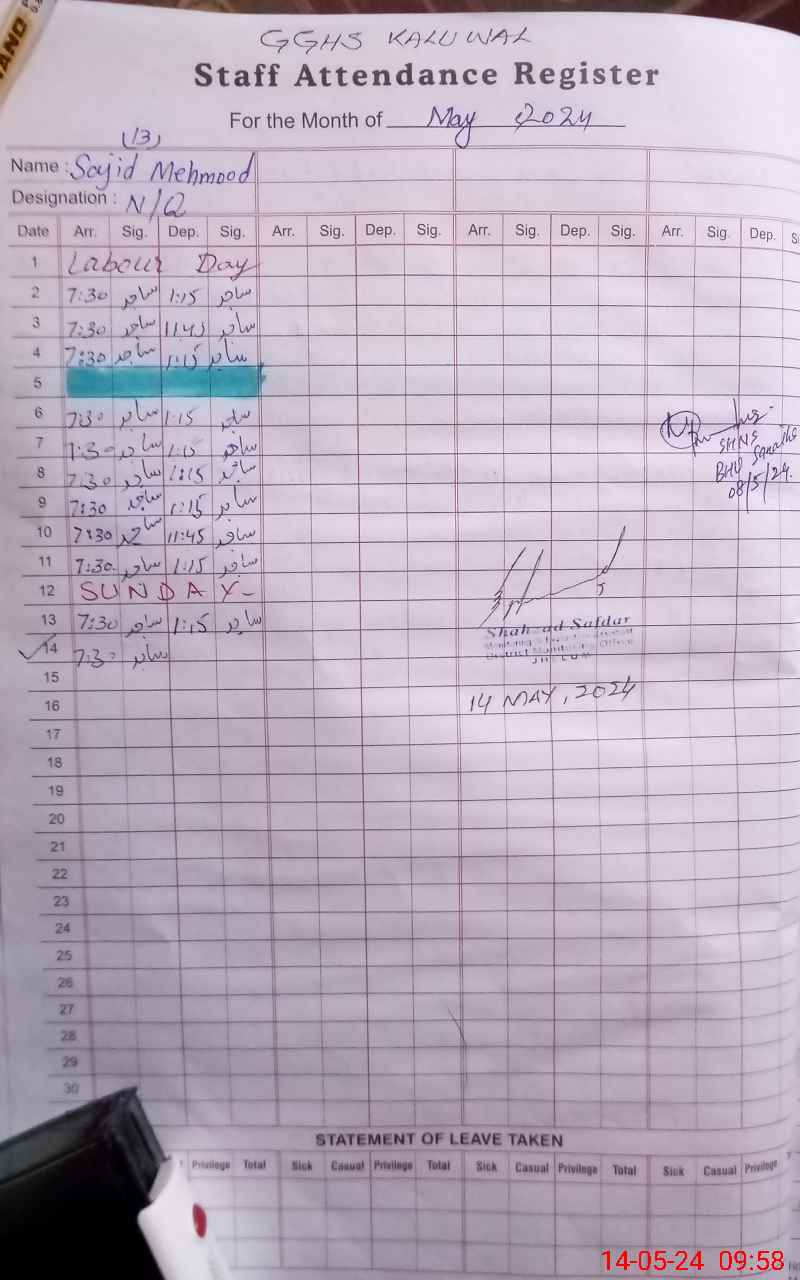 GGHS KALUWAL
Staff Attendance Register
For the Month of May 2024
(13)
Name : Sajid Mehmood
Designation : N/Q
Date Arr. Sig. Dep. Sig. Arr. Sig. Dep. Sig. Arr. Sig. Dep. Sig. Arr. Sig. Dep.
1 Labour Day
2 7:30 ساجد 1:15 ساجد
3 7:30 ساجد 11:45 ساجد
4 7:30 ساجد 1:15 ساجد
5
6 7:30 ساجد 1:15 ساجد
7 7:30 ساجد 1:15 ساجد
8 7:30 ساجد 1:15 ساجد
9 7:30 ساجد 1:15 ساجد
10 7:30 ساجد 11:45 ساجد
11 7:30 ساجد 1:15 ساجد
12 SUNDAY
13 7:30 ساجد 1:15 ساجد
14 7:30 ساجد
15
16
17
18
19
20
21
22
23
24
25
26
27
28
29
30
SHNS
BHU
08/5/24.
Shahzad Safdar
District Monitoring Officer
JHELUM
14 MAY, 2024
STATEMENT OF LEAVE TAKEN
Privilege Total Sick Casual Privilege Total Sick Casual Privilege Total Sick Casual Privilege
14-05-24 09:58